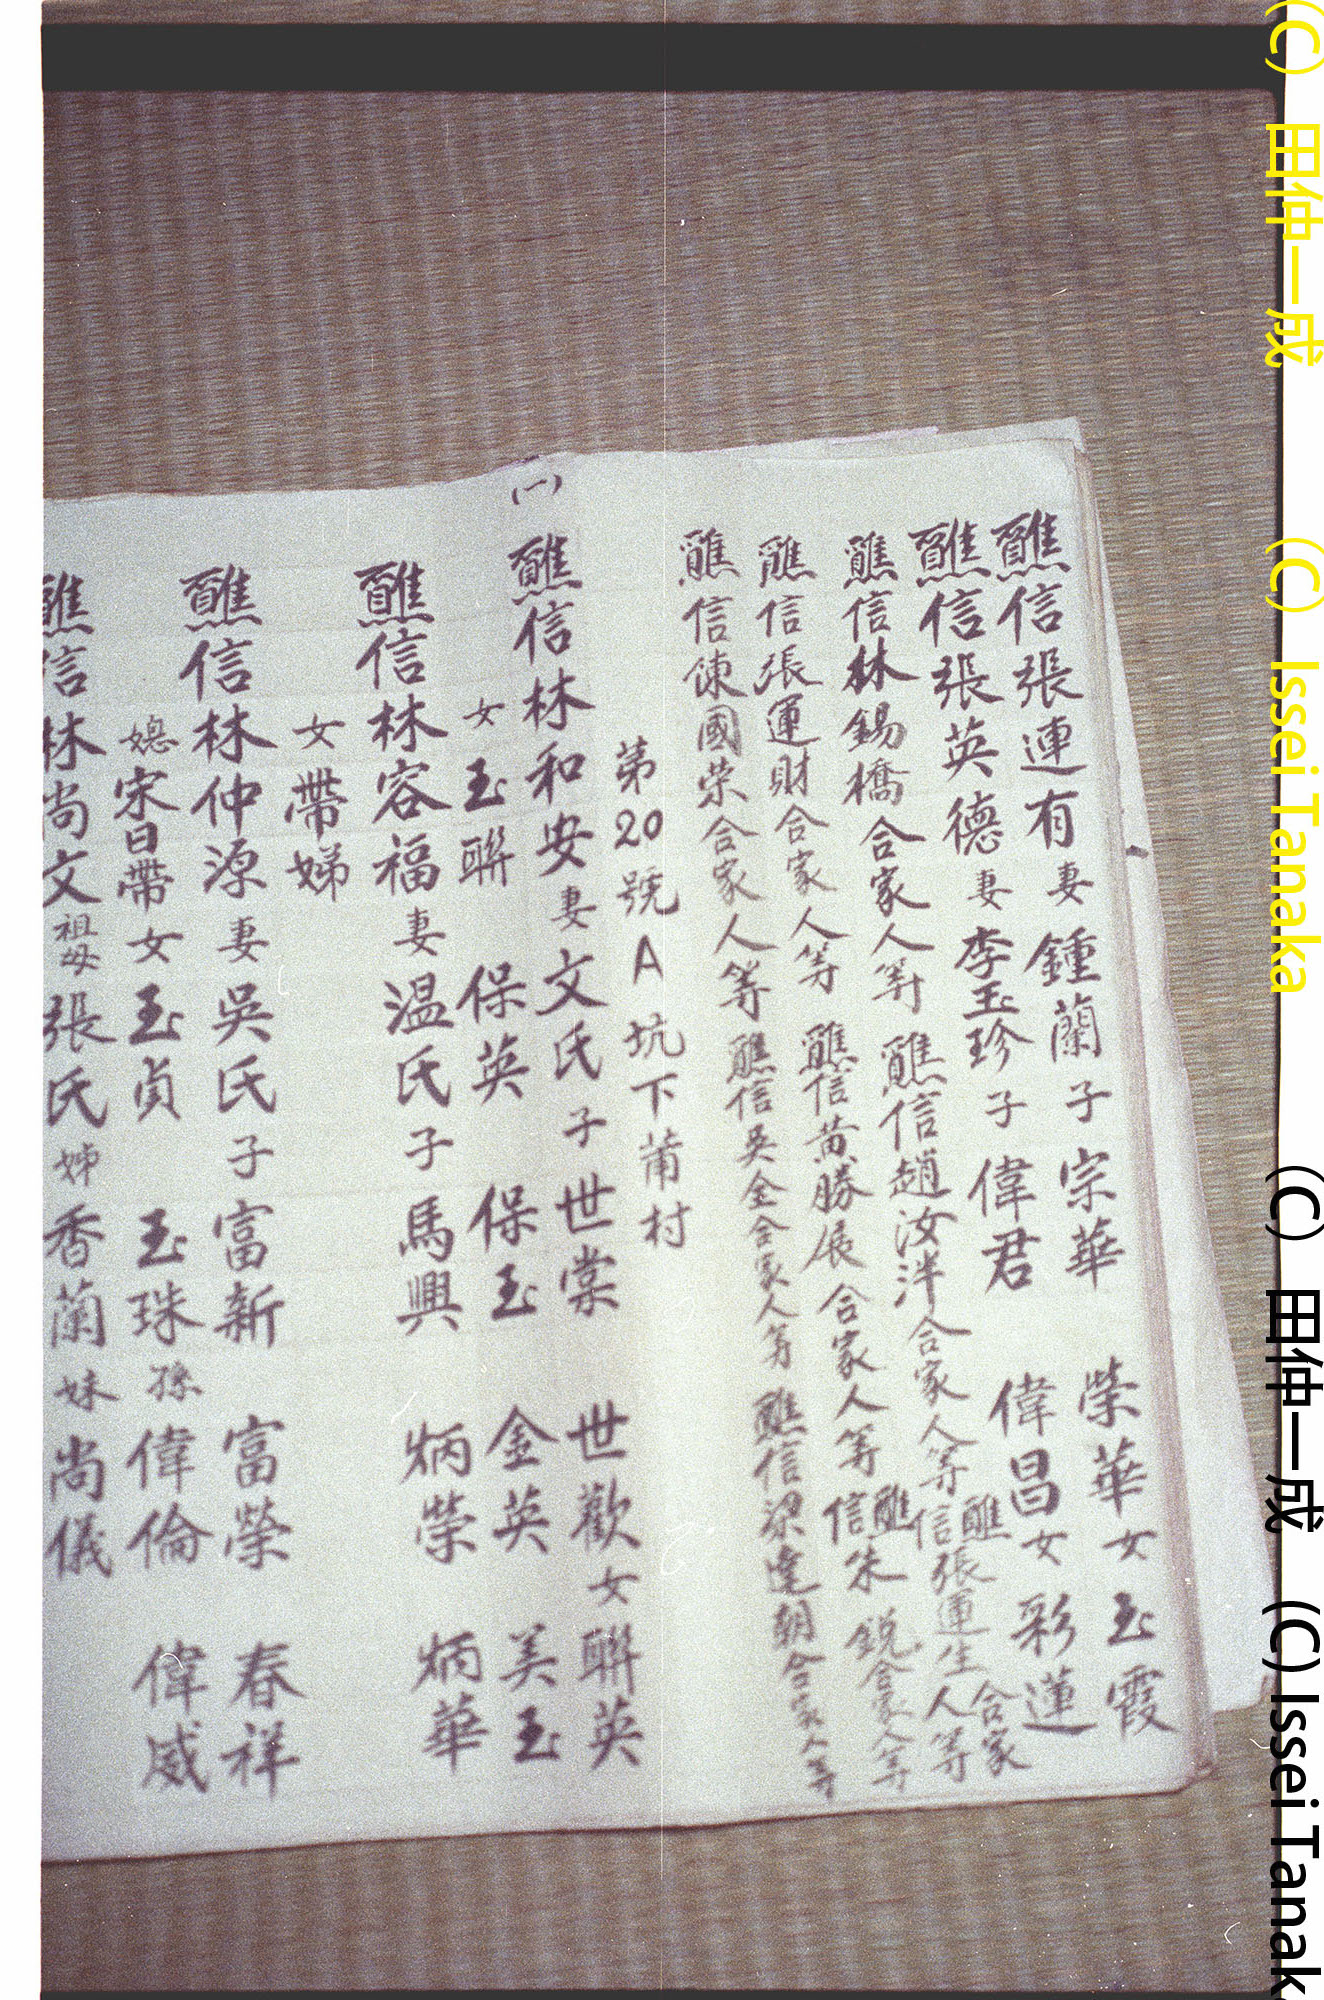 醮信張連有妻鍾蘭子宗華 榮華女玉霞
醮信張英德妻李玉珍子偉君 偉昌女彩蓮
醮信林錫橋合家人等 醮信趙汝泮合家人等 醮信張運生合家人等
醮信張運財合家人等 醮信黄勝展合家人等 醮信朱銳合家人等
醮信陳國荣合家人等 醮信吳全合家人等 醮信梁達朝合家人等
第20號A坑下莆村
(一)
醮信林和安妻文氏子世棠 世歡女聯英
女玉聯 保英 保玉 金英 美玉
醮信林容福妻温氏子馬興 炳榮 炳華
女帶娣
醮信林仲源妻吳氏子富新 富榮 春祥
媳宋日帶女玉貞 玉珠孫偉倫 偉威
醮信林尚文祖母張氏姊香蘭妹尚儀
(C) 田仲一成 (C) Issei Tanaka (C) 田仲一成 (C) Issei Tanak